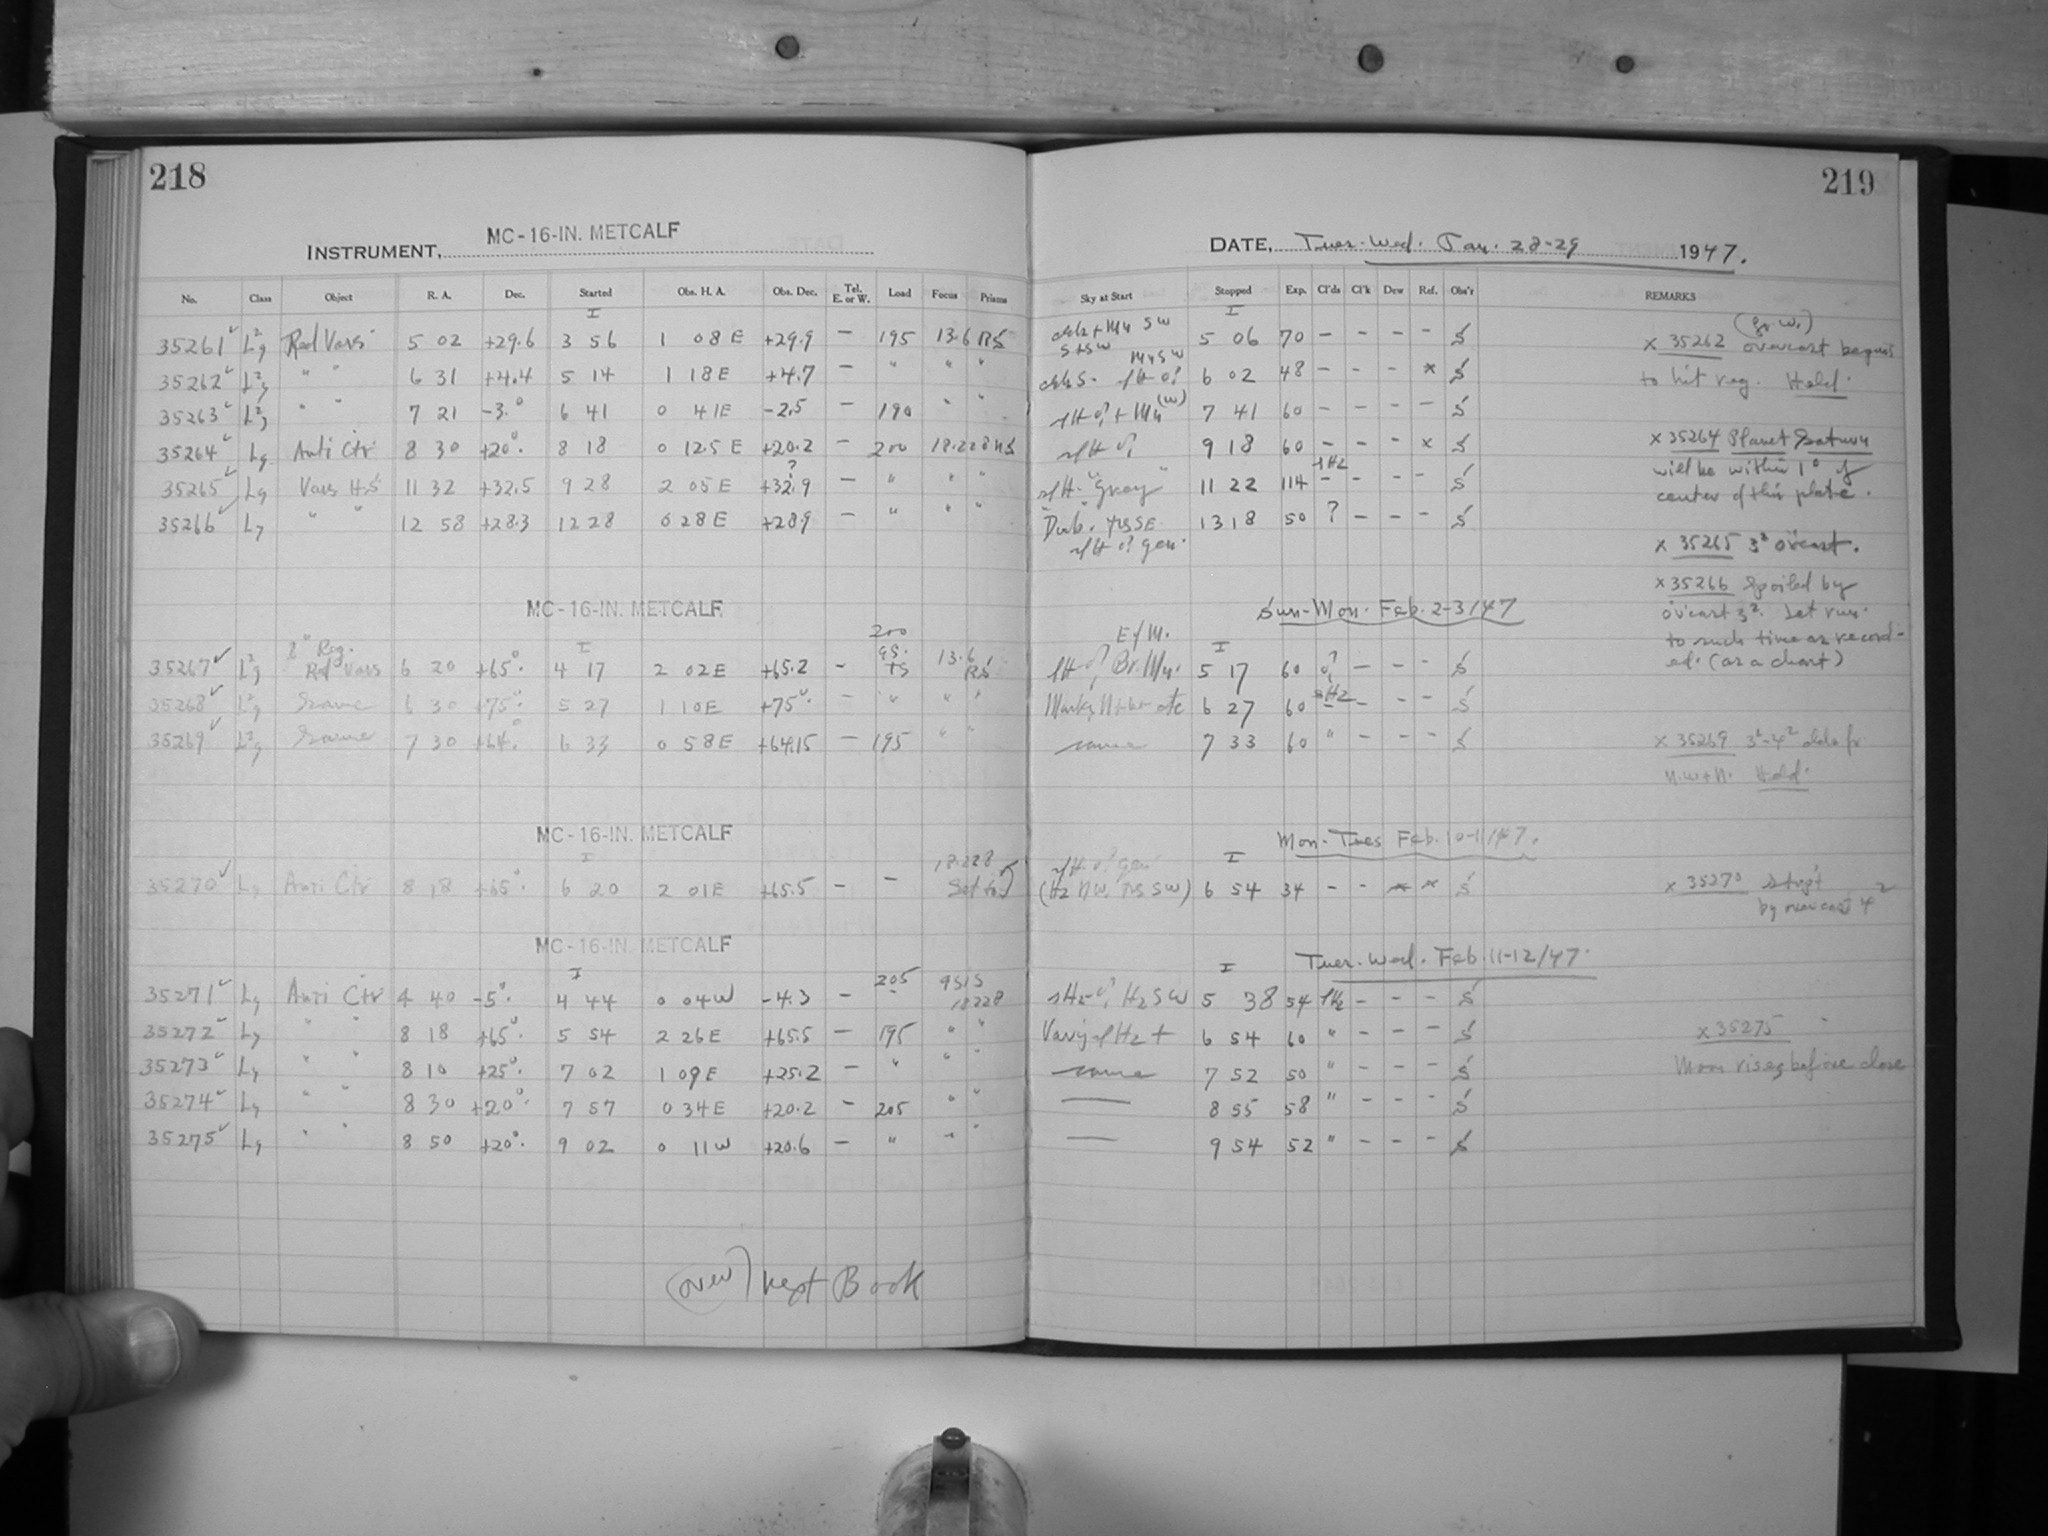 218
INSTRUMENT, MC-16-IN. METCALF
No. Class Object R. A. Dec. Started Obs. H. A. Obs. Dec. Tel. E. or W. Load Focus Prisms
I
35261 Red Vars 5 02 +29.6 3 56 1 08 E +29.9 — 195 13.6 RS
35262 " " 6 31 +4.4 5 14 1 18 E +4.7 — " " "
35263 " " 7 21 -3.° 6 41 0 41 E -2.5 — 190 " "
35264 Anti Ctr 8 30 +20°. 8 18 0 12.5 E +20.2 — 200 18.228 NS
35265 Vars H.S 11 32 +32.5 9 28 2 05 E +32.9 ? — " " "
35266 " " 12 58 +28.3 12 28 0 28 E +28.9 — " " "
MC-16-IN. METCALF
35267 Reg. Red Vars 6 20 +65° I 4 17 2 02 E +65.2 - 200 TS 13.6 RS
35268 Same 6 30 +75° 5 27 1 10 E +75°. — " " "
35269 Same 7 30 +64.° 6 33 0 58 E +64.15 — 195 " "
MC-16-IN. METCALF
I
35270 Anti Ctr 8 18 +65°. 6 20 2 01 E +65.5 — — 18.228
MC-16-IN. METCALF
I
35271 Anti Ctr 4 40 -5°. 4 44 0 04 W -4.3 — 205 18228
35272 " " 8 18 +65° 5 54 2 26 E +65.5 — 195 " "
35273 " " 8 10 +25°. 7 02 1 09 E +25.2 — " " "
35274 " " 8 30 +20°. 7 57 0 34 E +20.2 — 205 " "
35275 " " 8 50 +20°. 9 02 0 11 W +20.6 — " " "
(over) next Book
219
DATE, Tues-Wed. Jan. 28-29 1947.
Sky at Start Stopped Exp. Cl'ds Cl'k Dew Ref. Obs'r REMARKS
I
5 06 70 — — — — S
6 02 48 — — — x S
7 41 60 — — — — S
9 18 60 — — — x S
"Gray" 11 22 114 — — — — S
13 18 50 ? — — — S
x 35262 overcast begins
to hit reg. Held.
x 35264 Planet Saturn
will be within 1° of
center of this plate.
x 35265 3² o'cast.
x 35266 Spoiled by
o'vcast 3². Let run
to such time as record-
ed. (as a chart)
Sun-Mon. Feb. 2-3/47
I
5 17 60 — — — S
6 27 60 — — — S
same 7 33 60 " — — — S
x 35269 3²-4² clds fr
N.W+N. Held.
Mon-Tues Feb. 10-11/47.
I
(Hz NW, SW) 6 54 34 — — x x S
x 35270 stop't
by overcast 4²
Tues-Wed. Feb 11-12/47.
I
Hz SW 5 38 54 — — — S
6 54 60 " — — — S
same 7 52 50 " — — — S
—— 8 55 58 " — — — S
—— 9 54 52 " — — — S
x 35275
Moon rises before close